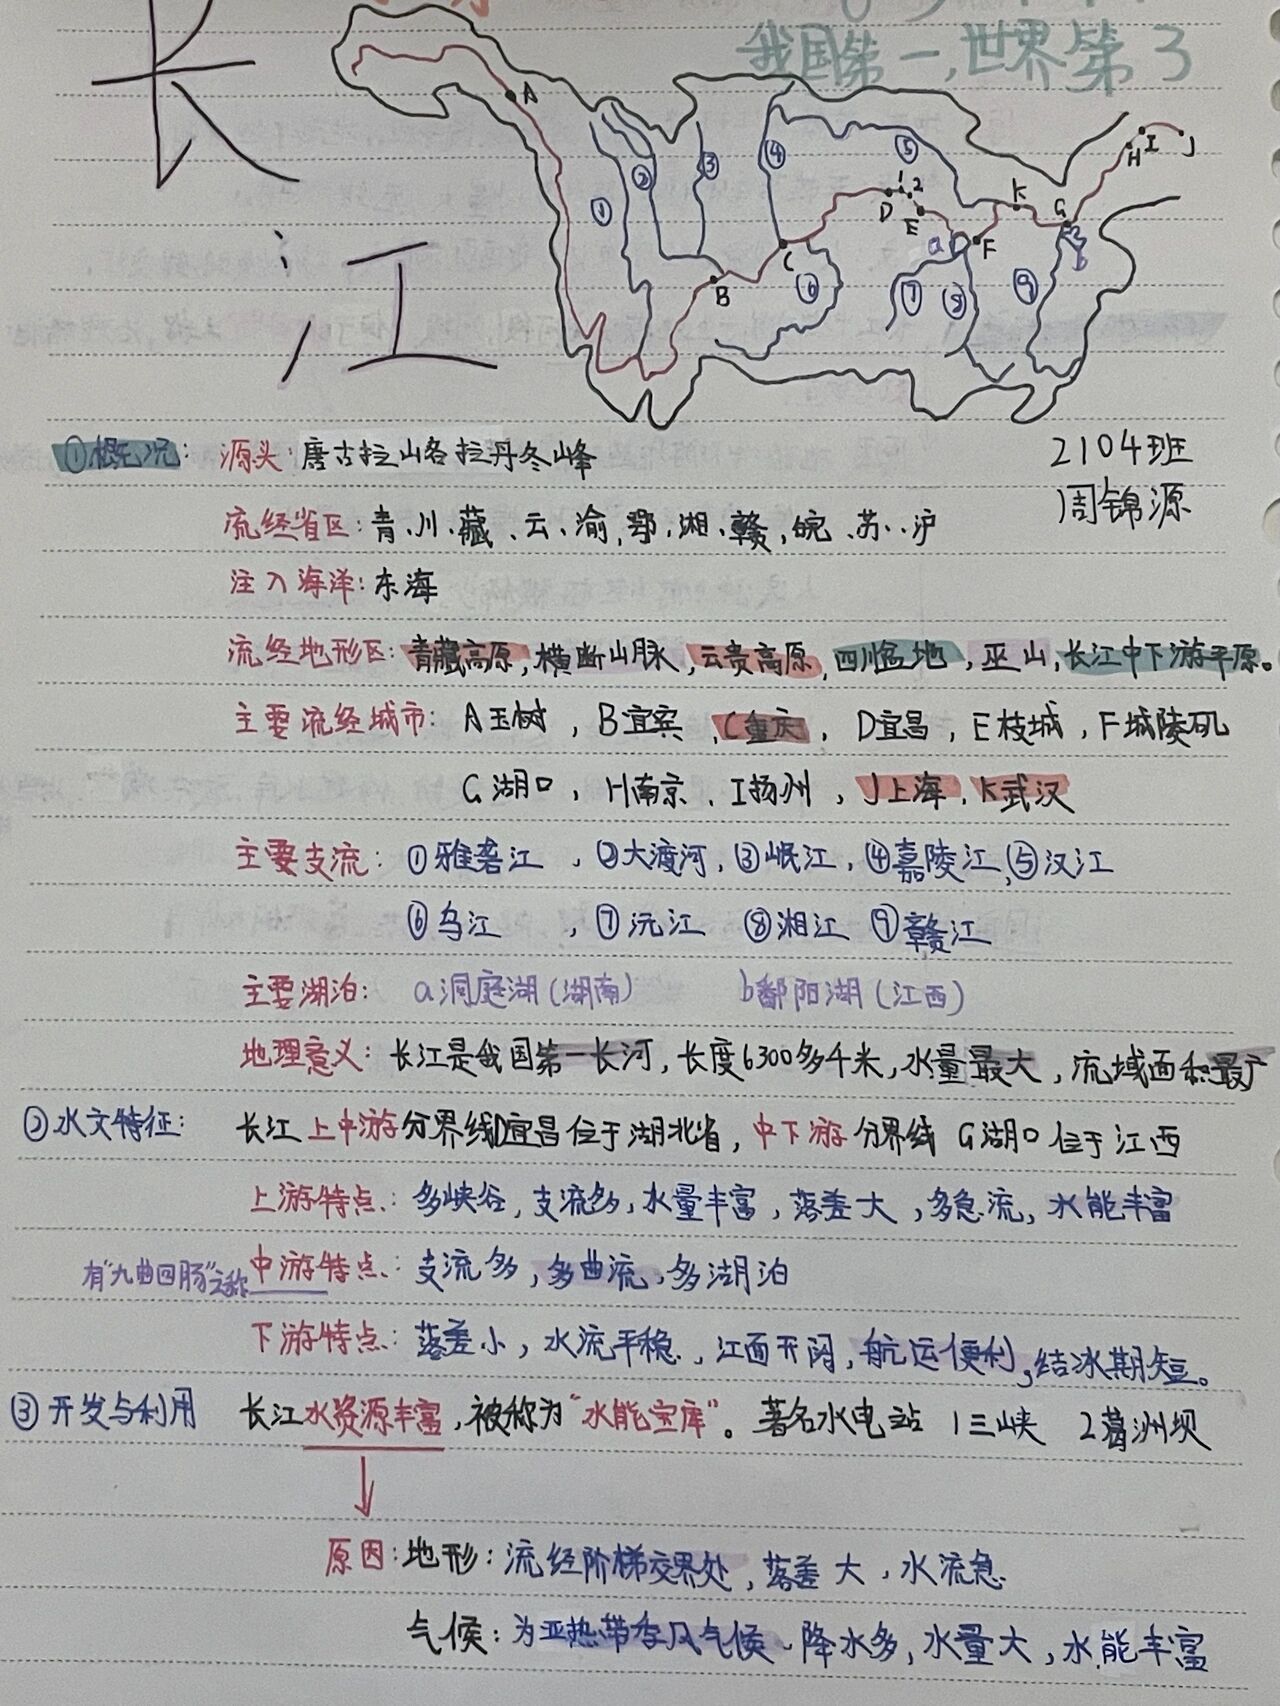 我国第一,世界第3
长
江
A
②
③
④
⑤
①
H I J
D 1 2 K
E G
a F b
C
B ⑥ ⑦ ⑧ ⑨
①概况: 源头:唐古拉山各拉丹冬峰
2104班
周锦源
流经省区:青、川、藏、云、渝,鄂、湘、赣,皖、苏、沪
注入海洋:东海
流经地形区:青藏高原,横断山脉,云贵高原,四川盆地,巫山,长江中下游平原。
主要流经城市:A玉树,B宜宾,C重庆,D宜昌,E枝城,F城陵矶
G湖口,H南京、I扬州,J上海、K武汉
主要支流:①雅砻江,②大渡河,③岷江,④嘉陵江,⑤汉江
⑥乌江,⑦沅江 ⑧湘江 ⑨赣江
主要湖泊:a洞庭湖(湖南) b鄱阳湖(江西)
地理意义:长江是我国第一长河,长度6300多千米,水量最大,流域面积最广
②水文特征: 长江上中游分界线D宜昌位于湖北省,中下游分界线G湖口位于江西
上游特点:多峡谷,支流多,水量丰富,落差大,多急流,水能丰富
有"九曲回肠"之称 中游特点:支流多,多曲流,多湖泊
下游特点:落差小,水流平稳,江面开阔,航运便利,结冰期短。
③开发与利用 长江水资源丰富,被称为"水能宝库"。著名水电站 1三峡 2葛洲坝
原因:地形:流经阶梯交界处,落差大,水流急
气候:为亚热带季风气候、降水多,水量大,水能丰富